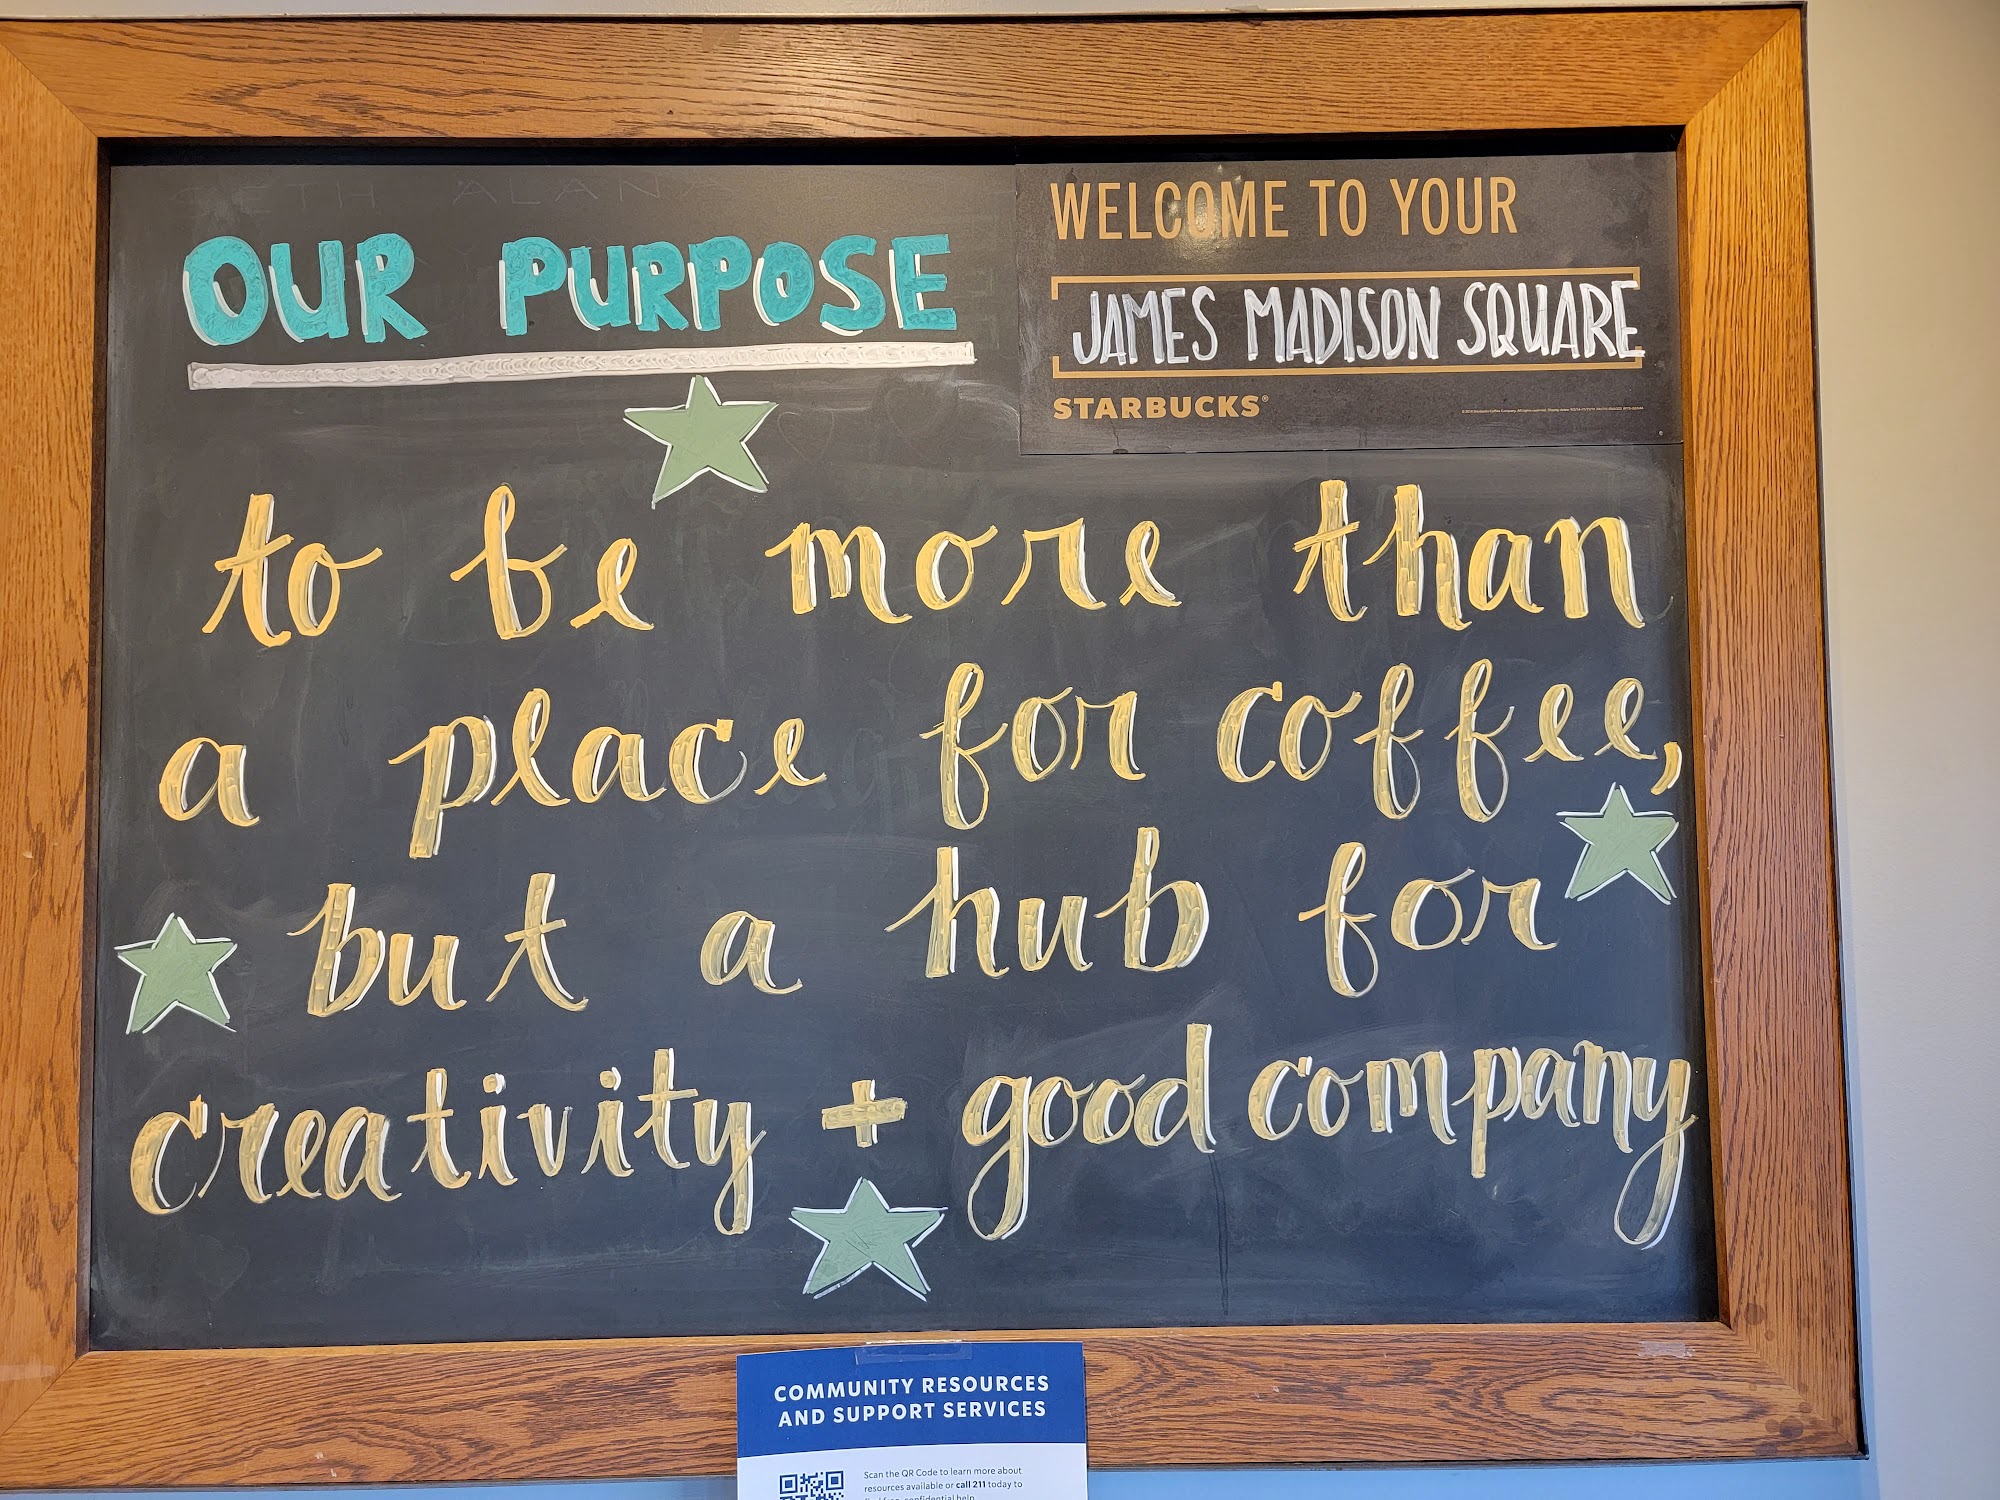 OUR PURPOSE
WELCOME TO YOUR
JAMES MADISON SQUARE
STARBUCKS®
to be more than
a place for coffee,
but a hub for
creativity + good company
COMMUNITY RESOURCES
AND SUPPORT SERVICES
Scan the QR Code to learn more about
resources available or call 211 today to